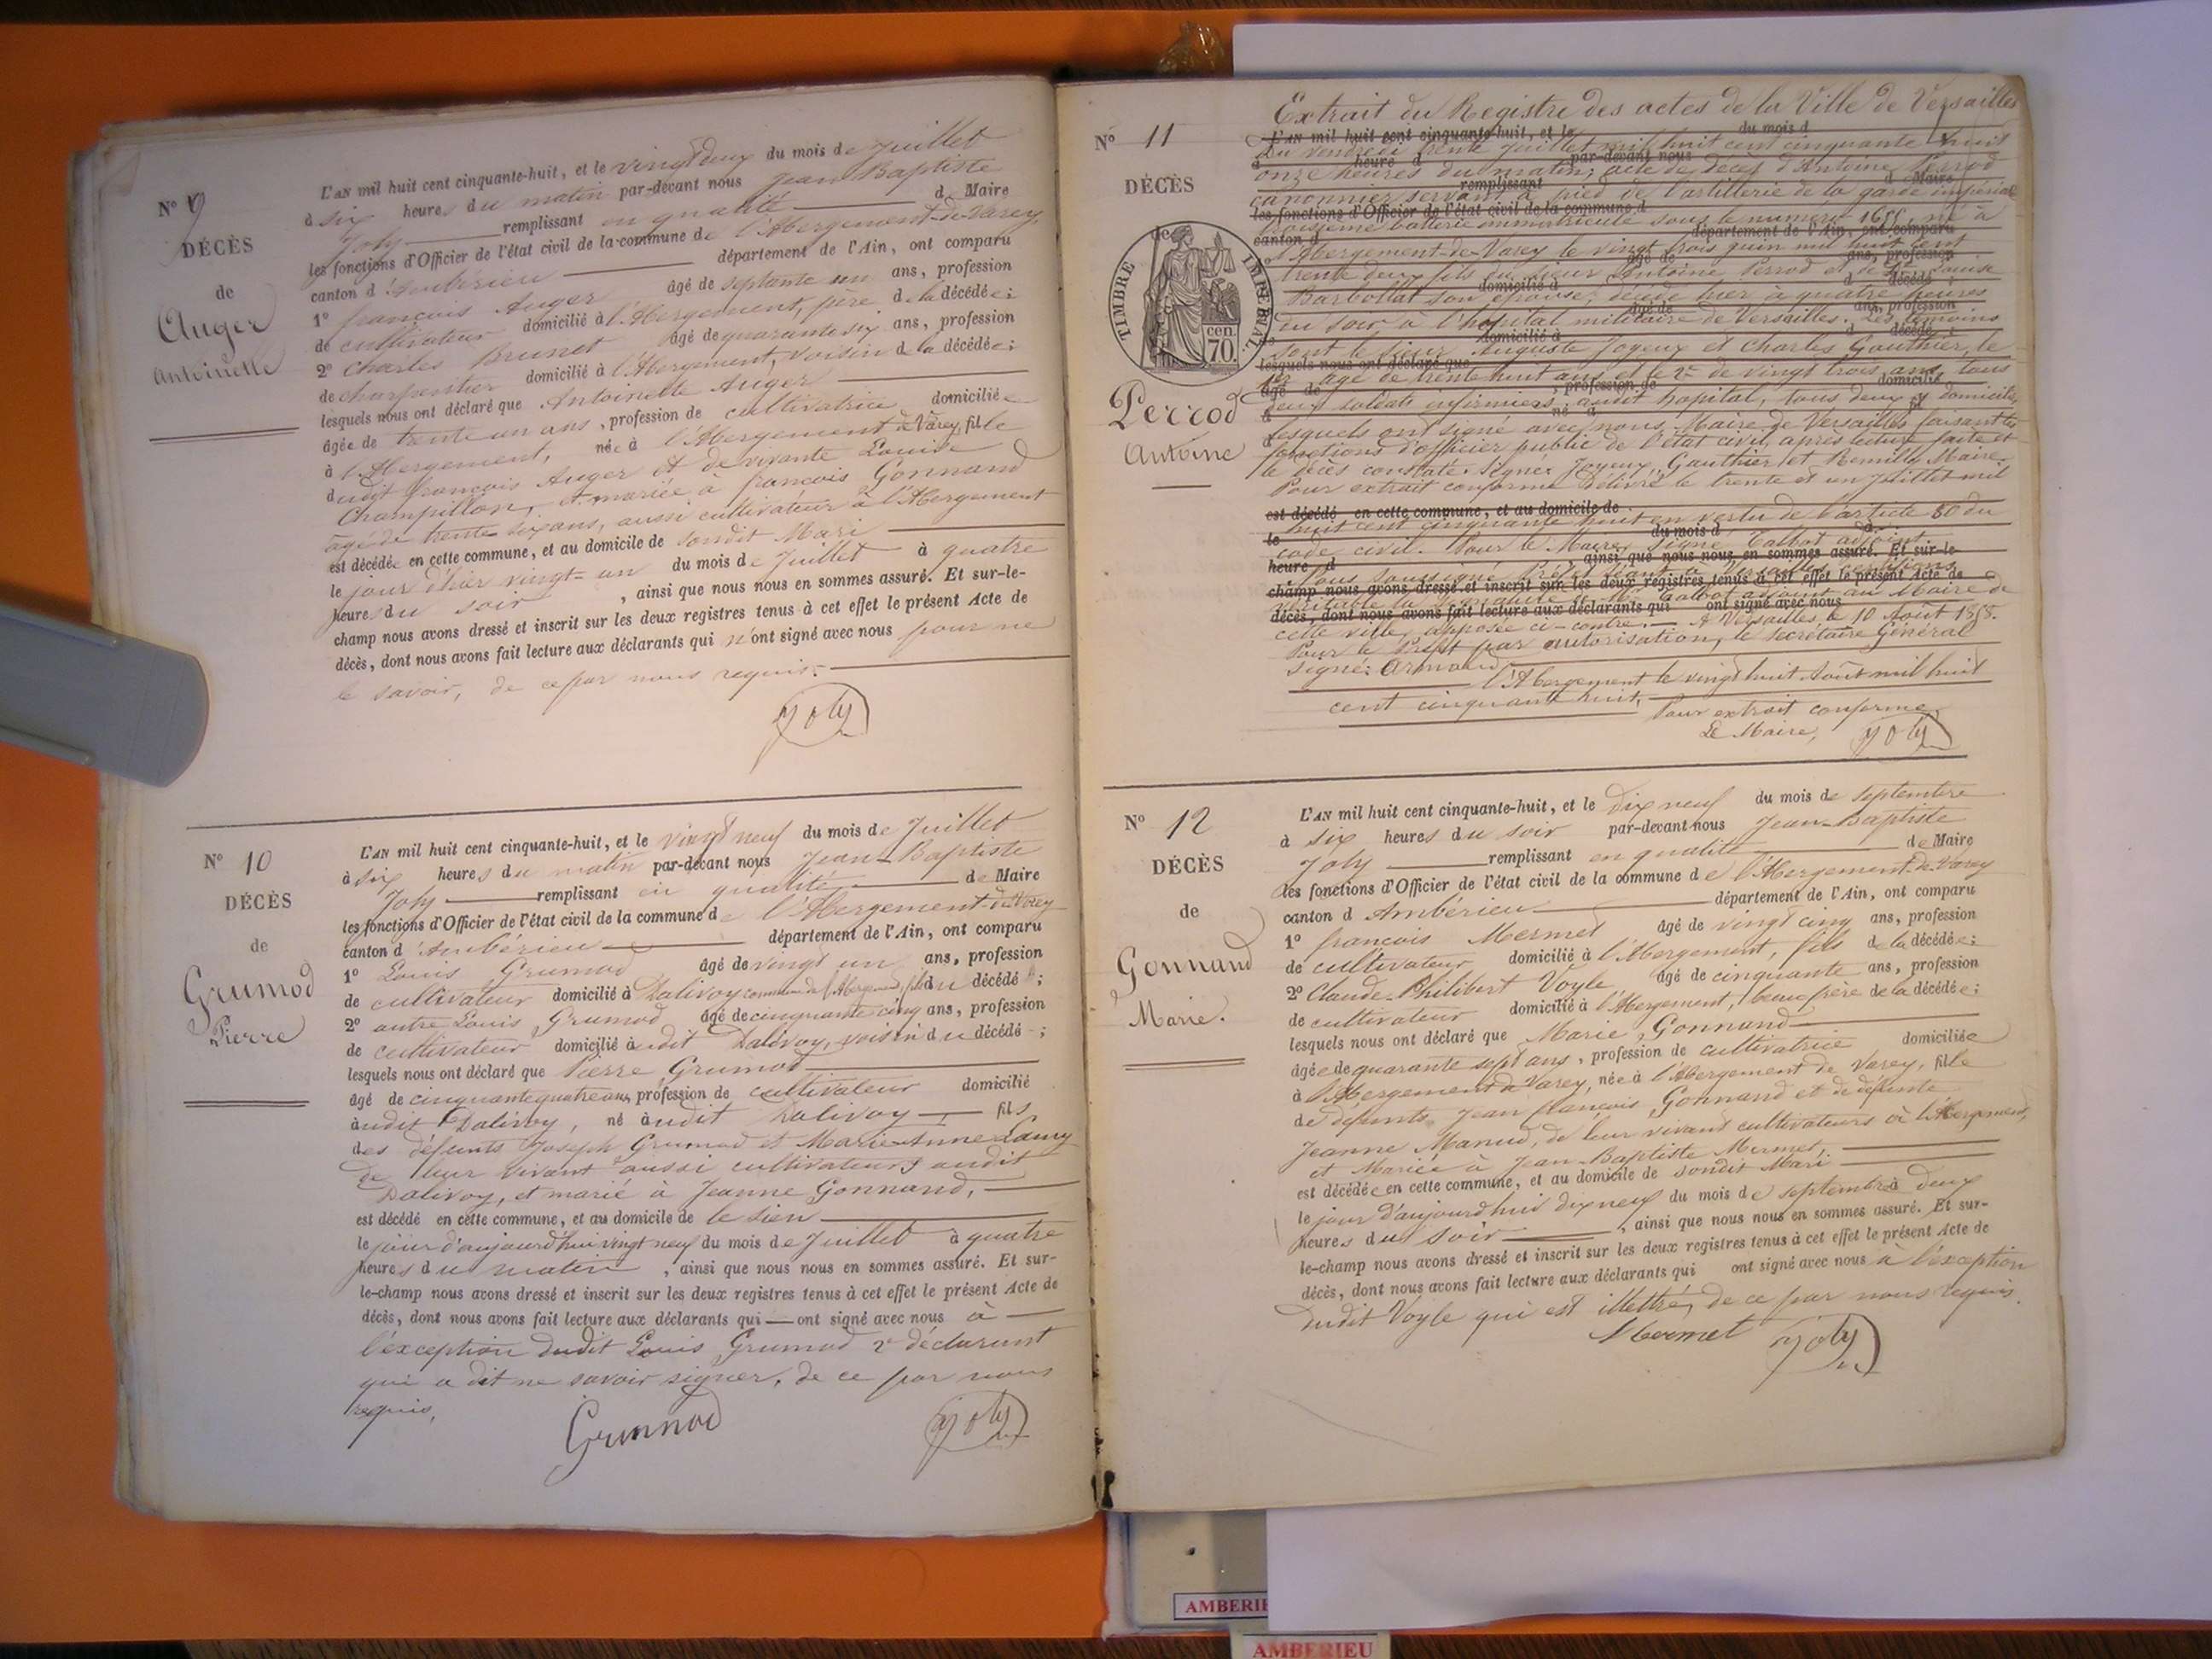 N° 9
DÉCÈS
de
Auger
Antoinette
L'AN mil huit cent cinquante-huit, et le vingt deux du mois de Juillet
à six heures du matin par-devant nous Jean Baptiste
Joly remplissant en qualité de Maire
les fonctions d'Officier de l'état civil de la commune de l'Abergement-de-Varey
canton d'Ambérieu département de l'Ain, ont comparu
1° françois Auger âgé de septante un ans, profession
de cultivateur domicilié à l'Abergement, père de la décédée;
2° Charles Brunet âgé de quarante six ans, profession
de charpentier domicilié à l'Abergement, voisin de la décédée;
lesquels nous ont déclaré que Antoinette Auger
âgée de trente un ans, profession de cultivatrice domiciliée
à l'Abergement, née à l'Abergement de Varey, fille
dudit françois Auger et de vivante Louise
Champillon, et mariée à françois Gonnand
âgé de trente six ans, aussi cultivateur à l'Abergement
est décédée en cette commune, et au domicile de sondit Mari
le jour d'hier vingt-un du mois de Juillet à quatre
heures du soir, ainsi que nous nous en sommes assuré. Et sur-le-
champ nous avons dressé et inscrit sur les deux registres tenus à cet effet le présent Acte de
décès, dont nous avons fait lecture aux déclarants qui n'ont signé avec nous pour ne
le savoir, de ce par nous requis.
Joly
N° 10
DÉCÈS
de
Grumod
Pierre
L'AN mil huit cent cinquante-huit, et le vingt neuf du mois de Juillet
à six heures du matin par-devant nous Jean-Baptiste
Joly remplissant en qualité de Maire
les fonctions d'Officier de l'état civil de la commune de l'Abergement-de-Varey
canton d'Ambérieu département de l'Ain, ont comparu
1° Louis Grumod âgé de vingt un ans, profession
de cultivateur domicilié à Dalivoy commune de l'Abergement, fils du décédé;
2° autre Louis Grumod âgé de cinquante cinq ans, profession
de cultivateur domicilié audit Dalivoy, voisin du décédé;
lesquels nous ont déclaré que Pierre Grumod
âgé de cinquante quatre ans, profession de cultivateur domicilié
audit Dalivoy, né audit Dalivoy fils
des défunts Joseph Grumod et Marie-Anne
de leur vivant aussi cultivateurs audit
Dalivoy, et marié à Jeanne Gonnand,
est décédé en cette commune, et au domicile de le sien
le jour d'aujourd'hui vingt neuf du mois de Juillet à quatre
heures du matin, ainsi que nous nous en sommes assuré. Et sur-
le-champ nous avons dressé et inscrit sur les deux registres tenus à cet effet le présent Acte de
décès, dont nous avons fait lecture aux déclarants qui ont signé avec nous à
l'exception dudit Louis Grumod 2e déclarant
qui a dit ne savoir signer, de ce par nous
requis,
Grumod Joly
N° 11
DÉCÈS
de
TIMBRE IMPERIAL
cen. 70.
Perrod
Antoine
Extrait du Registre des actes de la Ville de Versailles
L'AN mil huit cent cinquante-huit, et le du mois d
Du vendredi trente Juillet mil huit cent cinquante huit
à heure d par-devant nous
onze heures du matin; acte de décès d'Antoine Perrod
remplissant d Maire
canonnier servant à pied de l'artillerie de la garde impériale
les fonctions d'Officier de l'état civil de la commune d
troisième batterie immatriculé sous le numéro 1655, né à
canton d département de l'Ain, ont comparu
l'Abergement-de-Varey le vingt trois juin mil huit cent
âgé de ans, profession
trente deux fils du sieur Antoine Perrod et de Louise
domicilié à d décédé ;
Barbollat son épouse; décédé hier à quatre heures
âgé de ans, profession
du soir à l'hopital militaire de Versailles. Les témoins
domicilié à d décédé ;
sont le sieur Auguste Joyeux et Charles Gauthier, le
lesquels nous ont déclaré que
1er âgé de trente huit ans et le 2e de vingt trois ans, tous
âgé de , profession de domicilié
deux soldats infirmiers audit hopital, tous deux y domiciliés
à né à fil
lesquels ont signé avec nous Maire de Versailles faisant les
fonctions d'officier public de l'état civil, après lecture faite et
le décès constaté. Signé: Joyeux, Gauthier et Remilly Maire.
Pour extrait conforme Délivré le trente et un Juillet mil
est décédé en cette commune, et au domicile de
huit cent cinquante huit en vertu de l'article 80 du
le du mois d à
code civil. Pour le Maire, signé Talbot adjoint.
heure d ainsi que nous nous en sommes assuré. Et sur-le-
champ nous avons dressé et inscrit sur les deux registres tenus à cet effet le présent Acte de
véritable la signature de Mr Talbot adjoint au Maire de
décès, dont nous avons fait lecture aux déclarants qui ont signé avec nous
cette ville, apposée ci-contre. A Versailles, le 10 Août 1858.
Pour le Préfet par autorisation, le secrétaire Général
signé: Armand
l'Abergement le vingt huit Août mil huit
cent cinquante huit.
Pour extrait conforme,
Le Maire, Joly
N° 12
DÉCÈS
de
Gonnand
Marie.
L'AN mil huit cent cinquante-huit, et le dix neuf du mois de septembre
à six heures du soir par-devant nous Jean-Baptiste
Joly remplissant en qualité de Maire
les fonctions d'Officier de l'état civil de la commune de l'Abergement-de-Varey
canton d Ambérieu département de l'Ain, ont comparu
1° françois Mermet âgé de vingt cinq ans, profession
de cultivateur domicilié à l'Abergement, fils de la décédée;
2° Claude-Philibert Voyle âgé de cinquante ans, profession
de cultivateur domicilié à l'Abergement, beau frère de la décédée;
lesquels nous ont déclaré que Marie Gonnand
âgée de quarante sept ans, profession de cultivatrice domiciliée
à l'Abergement de Varey, née à l'Abergement de Varey, fille
de défunts Jean françois Gonnand et de défunte
Jeanne Manud, de leur vivant cultivateurs à l'Abergement,
et Mariée à Jean-Baptiste Mermet,
est décédée en cette commune, et au domicile de sondit Mari
le jour d'aujourd'hui dix neuf du mois de septembre à deux
heures du soir, ainsi que nous nous en sommes assuré. Et sur-
le-champ nous avons dressé et inscrit sur les deux registres tenus à cet effet le présent Acte de
décès, dont nous avons fait lecture aux déclarants qui ont signé avec nous à l'exception
dudit Voyle qui est illettré, de ce par nous requis.
Mermet Joly
AMBERIE
AMBERIEU